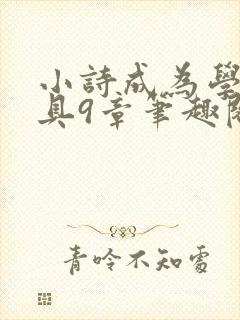 小詩成為學
具9章筆趣閣
青吟不知處